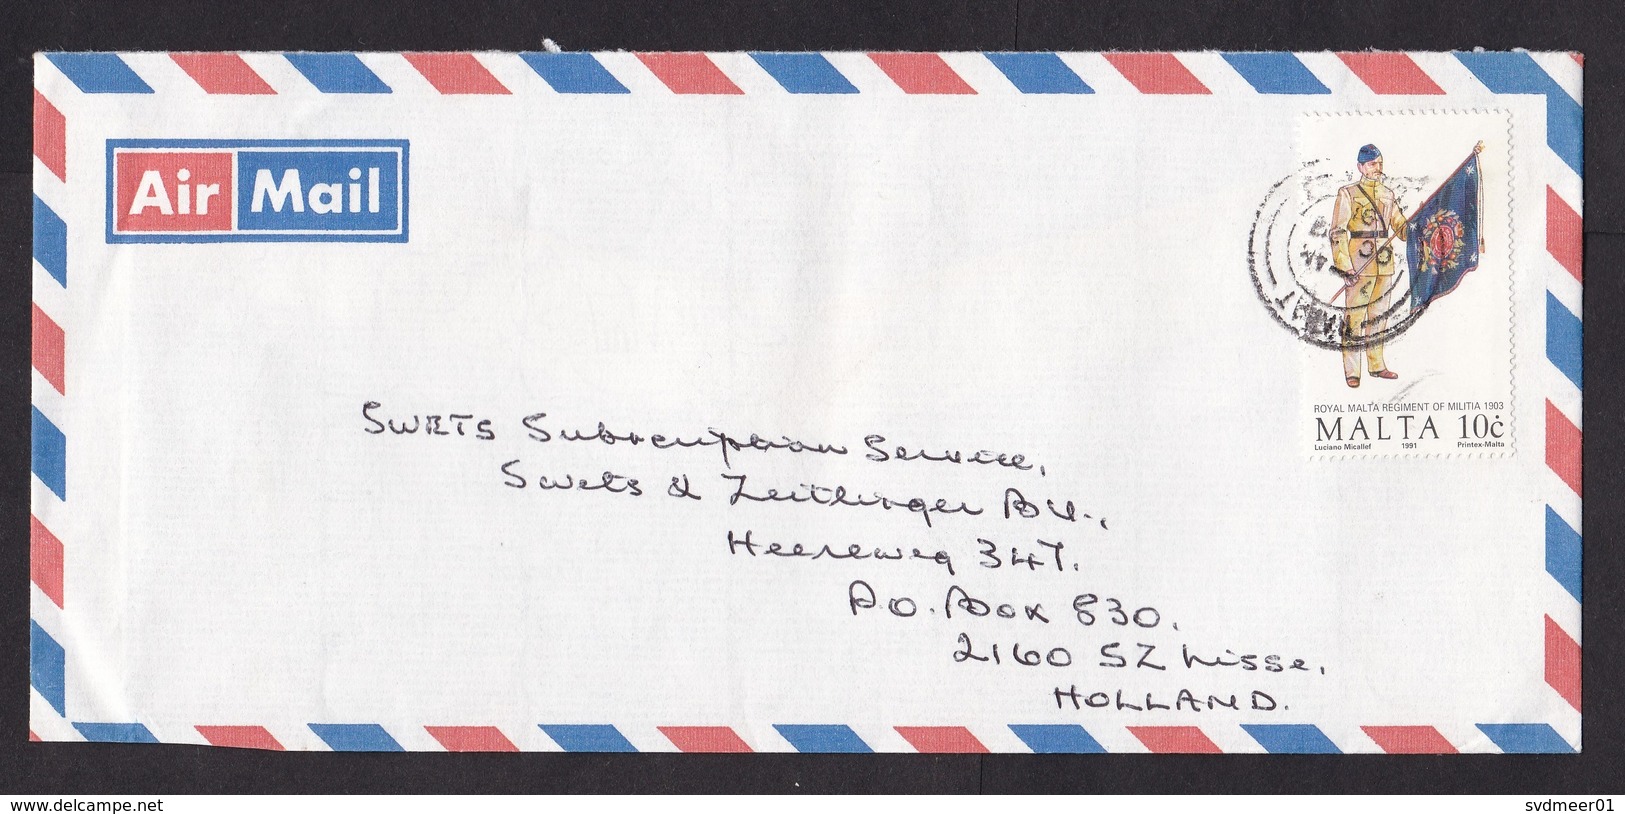 Air Mail
RABAT
ROYAL MALTA REGIMENT OF MILITIA 1903
MALTA 10ċ
Luciano Micallef 1991 Printex-Malta
SWETS Subscription Service,
Swets & Zeitlinger B.V.,
Heereweg 347.
P.O. Box 830.
2160 SZ Lisse.
HOLLAND.
www.delcampe.net
svdmeer01